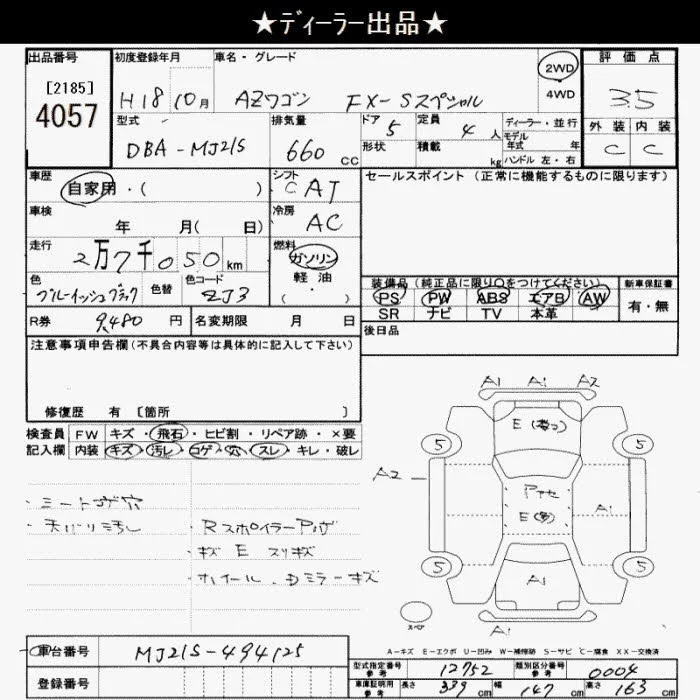 ★ディーラー出品★
出品番号 初度登録年月 車名・グレード 2WD 評価点
[2185] H18 10月 AZワゴン FX-Sスペシャル 4WD 3.5
4057 型式 排気量 ドア 定員 ディーラー・並行 外装 内装
DBA-MJ21S 660 cc 5 4人 モデル年式 年 C C
形状 積載 kg ハンドル 左・右
車歴 シフト セールスポイント(正常に機能するものに限ります)
自家用・( ) C AT
車検 年 月( 日) 冷房 AC
走行 2万7千050km 燃料 ガソリン
軽油
( )
色 色替 色コード 装備品(純正品に限り○をつけてください) 新車保証書
ブルーイッシュブラック ZJ3 PS PW ABS エアB AW 有・無
SR ナビ TV 本革
R券 9,480円 名変期限 月 日 後日品
注意事項申告欄(不具合内容等は具体的に記入して下さい)
修復歴 有 [箇所 ]
検査員 FW キズ・飛石・ヒビ割・リペア跡・×要
記入欄 内装 キズ・汚レ・コゲ・穴・スレ・キレ・破レ
A1 A1 A2
E
5 5
A2
A1
E
5 5
A1
スペア
A1
・シートコゲ穴
・天バリ汚レ
・Rスポイラー
・キズ E スリキズ
・ホイール、Dミラーキズ
A-キズ E-エクボ U-凹み W-補修跡 S-サビ C-腐食 XX-交換済
車台番号 MJ21S-494125
登録番号
型式指定番号 参考 12752 類別区分番号 参考 0004
車庫証明用 参考 長さ 339cm 幅 147cm 高さ 163cm